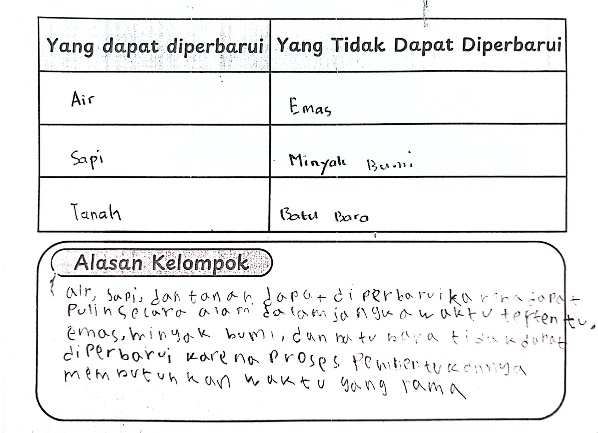 Yang dapat diperbarui Yang Tidak Dapat Diperbarui
Air Emas
Sapi Minyak Bumi
Tanah Batu Bara
Alasan Kelompok
air, sapi, dan tanah dapat diperbarui karena dapat
pulih secara alam dalam jangka waktu tertentu,
emas, minyak bumi, dan batu bara tidak dapat
diperbarui karena proses pembentukannya
membutuhkan waktu yang lama